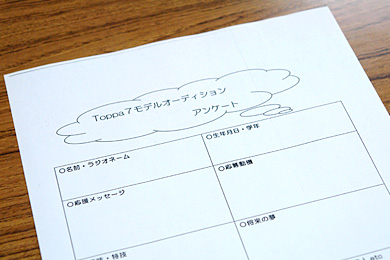 Toppa7モデルオーディション
アンケート
○名前・ラジオネーム
○生年月日・学年
○応援メッセージ
○応募動機
・特技
○将来の夢
etc